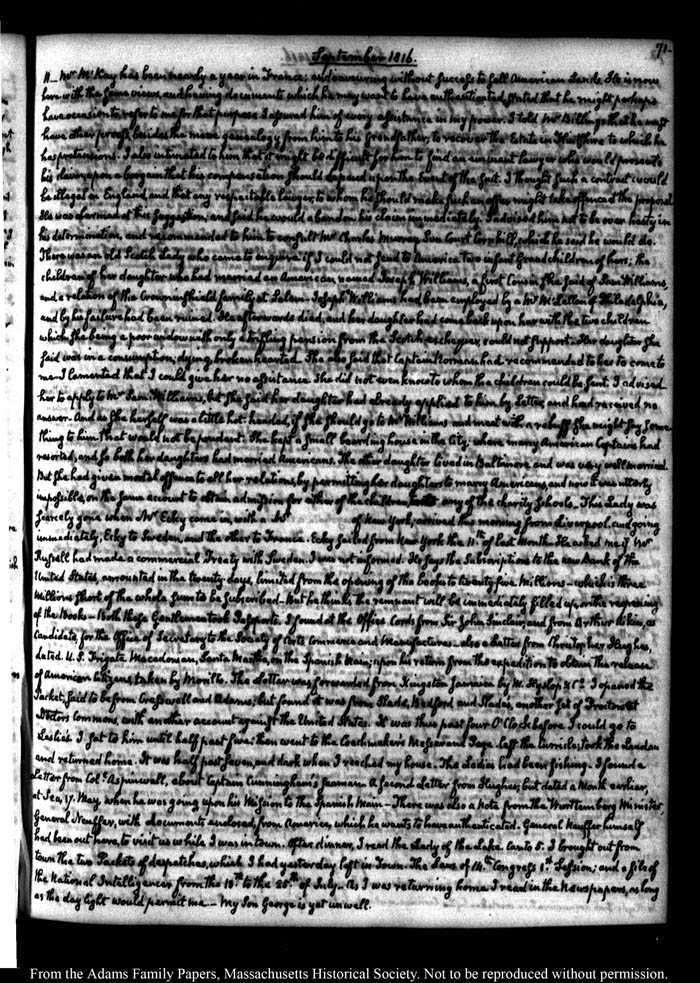 71.
September 1816.
11. Mr. McKay has been nearly a year in France; endeavouring without success to sell American Lands. He is now
here with the same views, and having documents which he may want to have authenticated, stated that he might perhaps
have occasion to refer to me for that purpose. I assured him of every assistance in my power. I told Mr. Billinge that he must
have other proofs, besides the mere genealogy from him to his Grandfather, to recover the Estate in Flintshire to which he
has pretensions. I also intimated to him that it might be difficult for him to find an eminent lawyer who would prosecute
his claim, upon a bargain that his compensation should depend upon the Event of the suit. I thought such a contract would
be illegal in England, and that any respectable lawyer, to whom he should make such an offer, might take offence at the proposal.
He was alarmed at this suggestion; and said he would abandon his claim immediately. I advised him not to be over hasty in
his determination, and recommended to him to consult Mr. Charles Murray, Sun Court Cornhill, which he said he would do.
There was an old Scotch Lady who came to enquire if I could not send to America two infant Grandchildren of hers; the
children of her daughter who had married an American named Joseph Williams, a first Cousin she said of Sam Williams,
and a relation of the Crowninshield family at Salem. Joseph Williams had been employed by a Mr. McLallen of Philadelphia,
and by his failure had been ruined. He afterwards died, and her daughter had come back upon her with the two children
which she being a poor widow with only a trifling pension from the Scotch exchequer, could not support. Her daughter she
said was in a consumption; dying, broken hearted. She also said that Captain Norman had recommended to her to come to
me. I lamented that I could give her no assistance. She did not even know to whom the children could be sent. I advised
her to apply to Mr. Sam: Williams, but she said her daughter had already applied to him by Letter, and had received no
answer. And as she herself was a little hot-headed, if she should go to Mr. Williams and meet with a rebuff she might say some-
thing to him that would not be prudent. She kept a small boarding house in the City; where many American Captains had
resorted, and so both her daughters had married Americans. The other daughter lived in Baltimore and was very well married.
But she had given mortal offence to all her relations, by permitting her daughters to marry Americans, and now it was utterly
impossible, on the same account to obtain admission for either of the children any of the charity schools. This Lady was
scarcely gone when Mr. Ecky came in, with a Mr. of New York; arrived this morning from Liverpool, and going
immediately, Ecky to Sweden, and the other to France. Ecky sailed from New York the 11th. of last Month. He asked me if Mr.
Russell had made a commercial Treaty with Sweden. I was not informed. He says the Subscriptions to the new Bank of the
United States, amounted in the twenty days, limited from the opening of the books to twenty five Millions— which is three
Millions short of the whole sum to be subscribed— But he thinks the remnant will be immediately filled up on the reopening
of the Books— Both these Gentlemen took Passports. I found at the Office Cards from Sir John Sinclair, and from Arthur Aikin, as
Candidate for the Office of Secretary to the Society of Arts Commerce and Manufactures— also a Letter from Christopher Hughes,
dated U.S. Frigate Macedonian, Santa Martha, on the Spanish Main; upon his return from the expedition to obtain the release
of American Citizens taken by Morillo. The Letter was forwarded from Kingston Jamaica by M. Hyslop & Co. I opened the
Packet, said to be from Cresswell and Adams; but found it was from Slade, Bedford and Slade, another set of Proctors at
Doctors Commons, with another account against the United States. It was thus past four O'Clock before I could go to
Leslie's. I sat to him until half past five: then went to the Coachmaker's Messer and Page. Left the Curricle; took the Landau
and returned home. It was half past seven, and dark when I reached my house. The Ladies had been fishing. I found a
Letter from Coll. Aspinwall, about Captain Cunningham's seamen. A second Letter from Hughes, but dated a Month earlier,
at Sea, 17. May, when he was going upon his Mission to the Spanish Main— There was also a Note from the Wurttemberg Minister,
General Neuffer, with documents enclosed, from America, which he wants to have authenticated. General Neuffer himself
had been out here, to visit us while I was in town. After dinner, I read the Lady of the Lake Canto 5. I brought out from
town the two Packets of despatches, which I had yesterday left in Town. The Laws of 14th. Congress 1st. Session; and a file of
the National Intelligencer from the 10th. to the 20th. of July— As I was returning home I read in the Newspapers, as long
as the day light would permit me— My Son George is yet unwell.
From the Adams Family Papers, Massachusetts Historical Society. Not to be reproduced without permission.